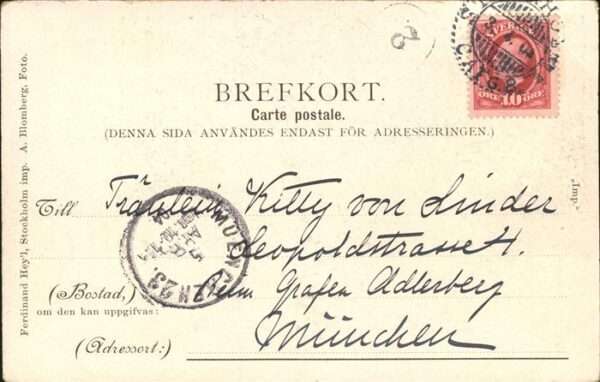 SVERIGE
10
ÖRE ÖRE
BREFKORT.
Carte postale.
(DENNA SIDA ANVÄNDES ENDAST FÖR ADRESSERINGEN.)
Till Fräulein Kitty von Linder
Leopoldstrasse 4.
(Bostad,) Beim Grafen Adlerberg
om den kan uppgifvas:
München
(Adressort:)
MUENCHEN 23.
Ferdinand Hey'l, Stockholm imp. A. Blomberg, Foto.
"Imp"